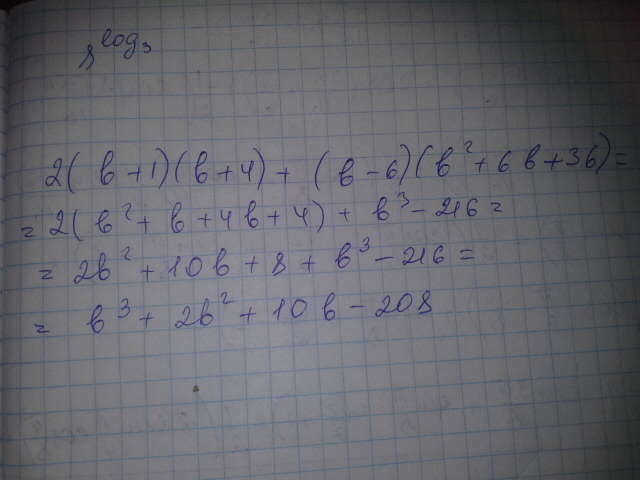 8^log₃
2(b+1)(b+4)+(b-6)(b²+6b+36)=
=2(b²+b+4b+4)+b³-216=
=2b²+10b+8+b³-216=
=b³+2b²+10b-208